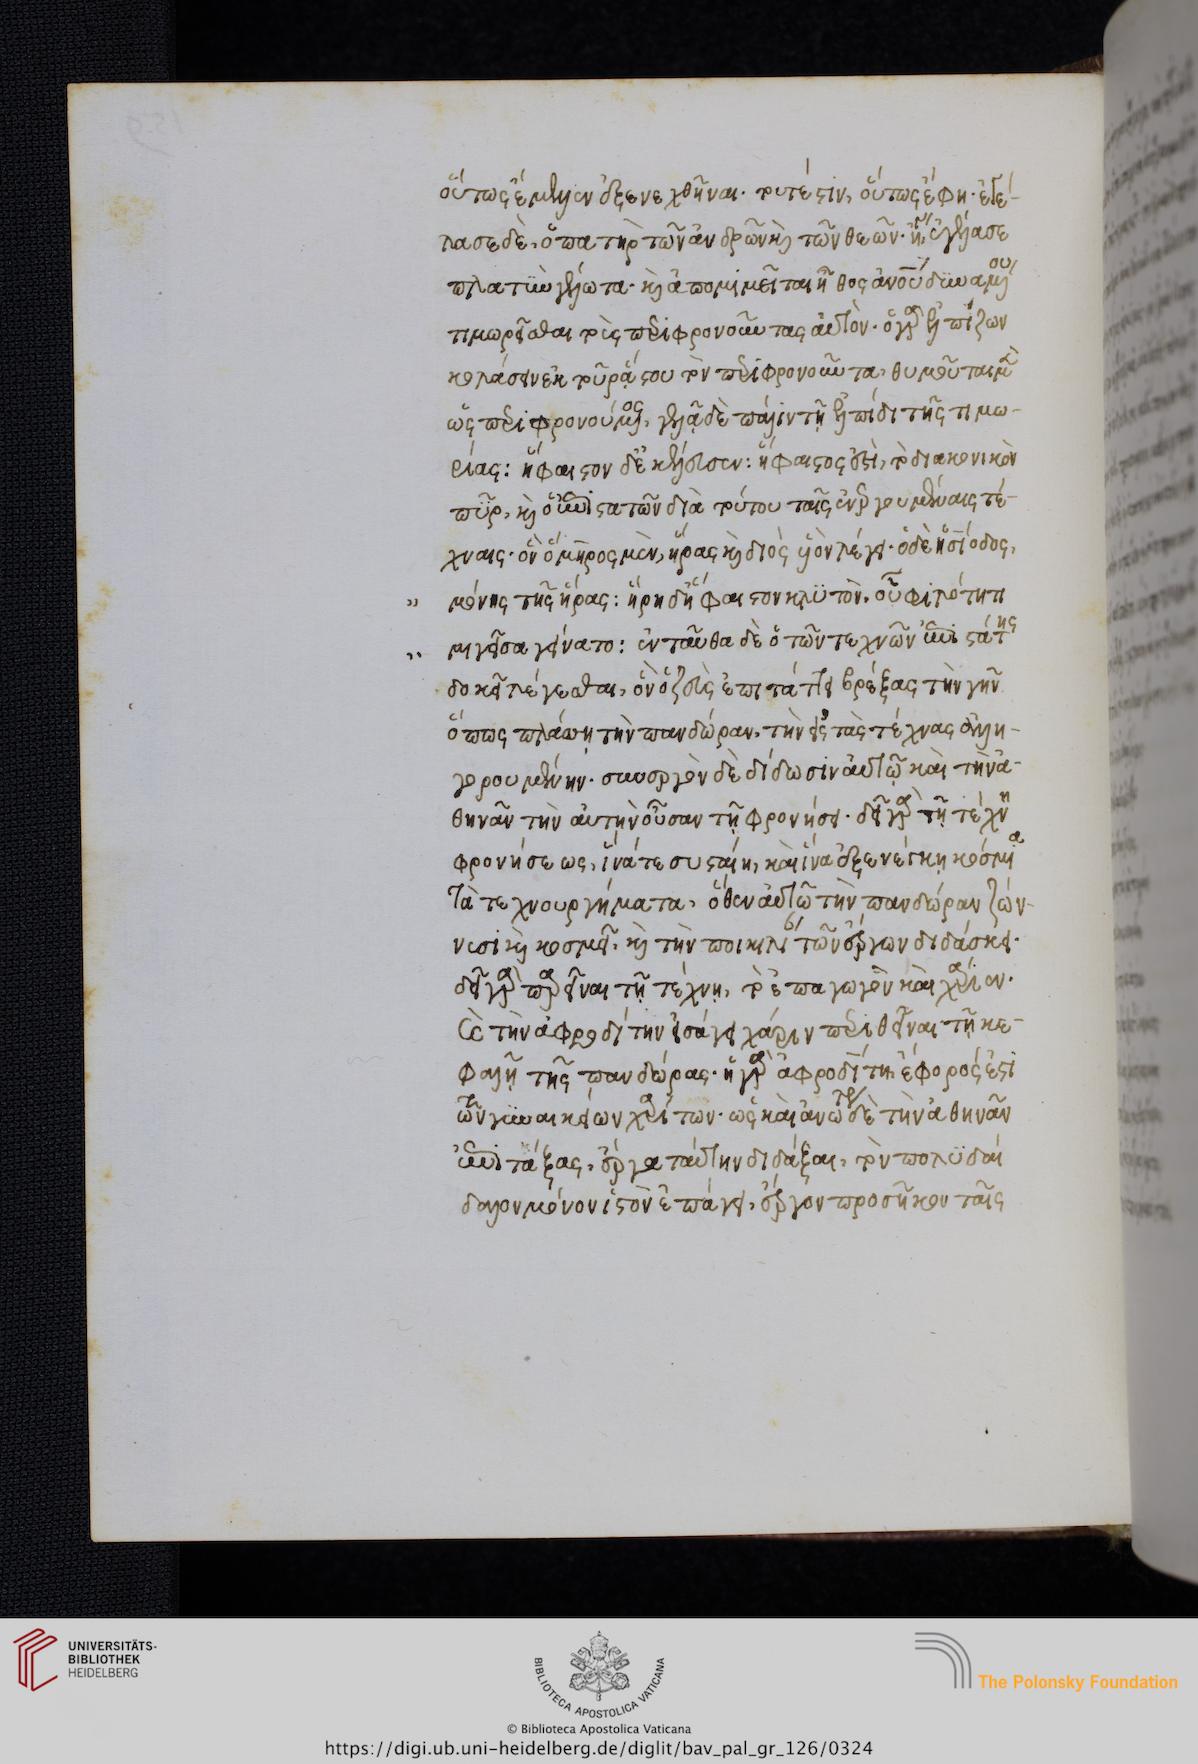 οὕτως ἔμελλεν ἐξενεχθῆναι. τουτέστιν, οὕτως ἔφη. ἐγέ-
λασε δὲ, ὁ πατὴρ τῶν ἀνδρῶν καὶ τῶν θεῶν. ἤ, ἐγέλασε
πλατὺν γέλωτα. καὶ ἀπομιμεῖται ἦθος ἀνου δυναμένου
τιμωρεῖσθαι τοὺς περιφρονοῦντας αὐτόν. ὁ γὰρ ἐλπίζων
κολάσειν ἐκ τοῦ ῥᾴστου τὸν περιφρονοῦντα, θυμοῦται μὲν
ὡς περιφρονούμενος, γελᾷ δὲ πάλιν τῇ ἐλπίδι τῆς τιμω-
ρίας: ἥφαιστον δ' ἐκέλευσεν: ἥφαιστος ἐστὶ, τὸ διακονικὸν
πῦρ, καὶ ὁ ἐπιστατῶν διὰ τούτου ταῖς ἐνεργουμέναις τέ-
χναις. ὃν ὅμηρος μὲν, ἥρας καὶ διὸς υἱὸν λέγει. ὁ δὲ ἡσίοδος,
μόνης τῆς ἥρας: ἥρη δ' ἥφαιστον κλυτὸν, οὐ φιλότητι
μιγεῖσα γείνατο: ἐνταῦθα δὲ ὁ τῶν τεχνῶν ἐπιστάτης
δοκεῖ λέγεσθαι, ὃν ὁ ζεὺς ἐπιτάττει βρέξας τὴν γῆν
ὅπως πλάσῃ τὴν πανδώραν, τὴν εἰς τὰς τέχνας ἀλλη-
γορουμένην. συνεργὸν δὲ δίδωσιν αὐτῷ καὶ τὴν ἀ-
θηνᾶν τὴν αὐτὴν οὖσαν τῇ φρονήσει. δεῖ γὰρ τῇ τέχνῃ
φρονήσεως, ἵνά τε συσταίη, καὶ ἵνα ἐξενέγκῃ κόσμια
τὰ τεχνουργήματα, ὅθεν αὐτῷ τὴν πανδώραν ζών-
νυσι καὶ κοσμεῖ, καὶ τὴν τῶν ἔργων διδάσκει.
δεῖ γὰρ παρεῖναι τῇ τέχνῃ, τὸ ἐπαγωγὸν καὶ χαρίεν.
ὁ δὲ τὴν ἀφροδίτην εἰσάγει χάριν περιθεῖναι τῇ κε-
φαλῇ τῆς πανδώρας. ἡ γὰρ ἀφροδίτη ἔφορός ἐστι
τῶν γυναικείων χαρίτων. ὡς καὶ ἀνωτέρω δὲ τὴν ἀθηνᾶν
ἐπιτάξας, ἔργα ταύτην διδάξαι, τὸν πολυδαί
δαλον μόνον ἱστὸν ἐπάγει, ἔργον προσῆκον ταῖς
UNIVERSITÄTS-
BIBLIOTHEK
HEIDELBERG
BIBLIOTECA APOSTOLICA VATICANA
The Polonsky Foundation
© Biblioteca Apostolica Vaticana
https://digi.ub.uni-heidelberg.de/diglit/bav_pal_gr_126/0324